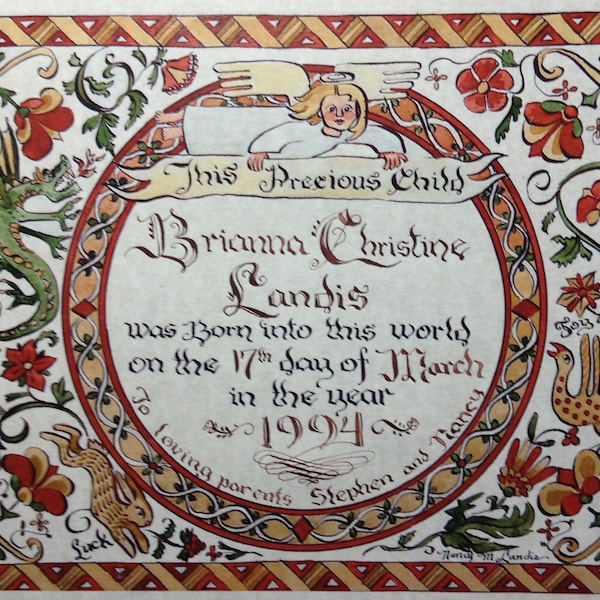 This Precious Child
Brianna Christine
Landis
was Born into this world
on the 17th day of March
in the year
1994
To Loving parents Stephen and Nancy
Joy
Luck
Nancy M Landis